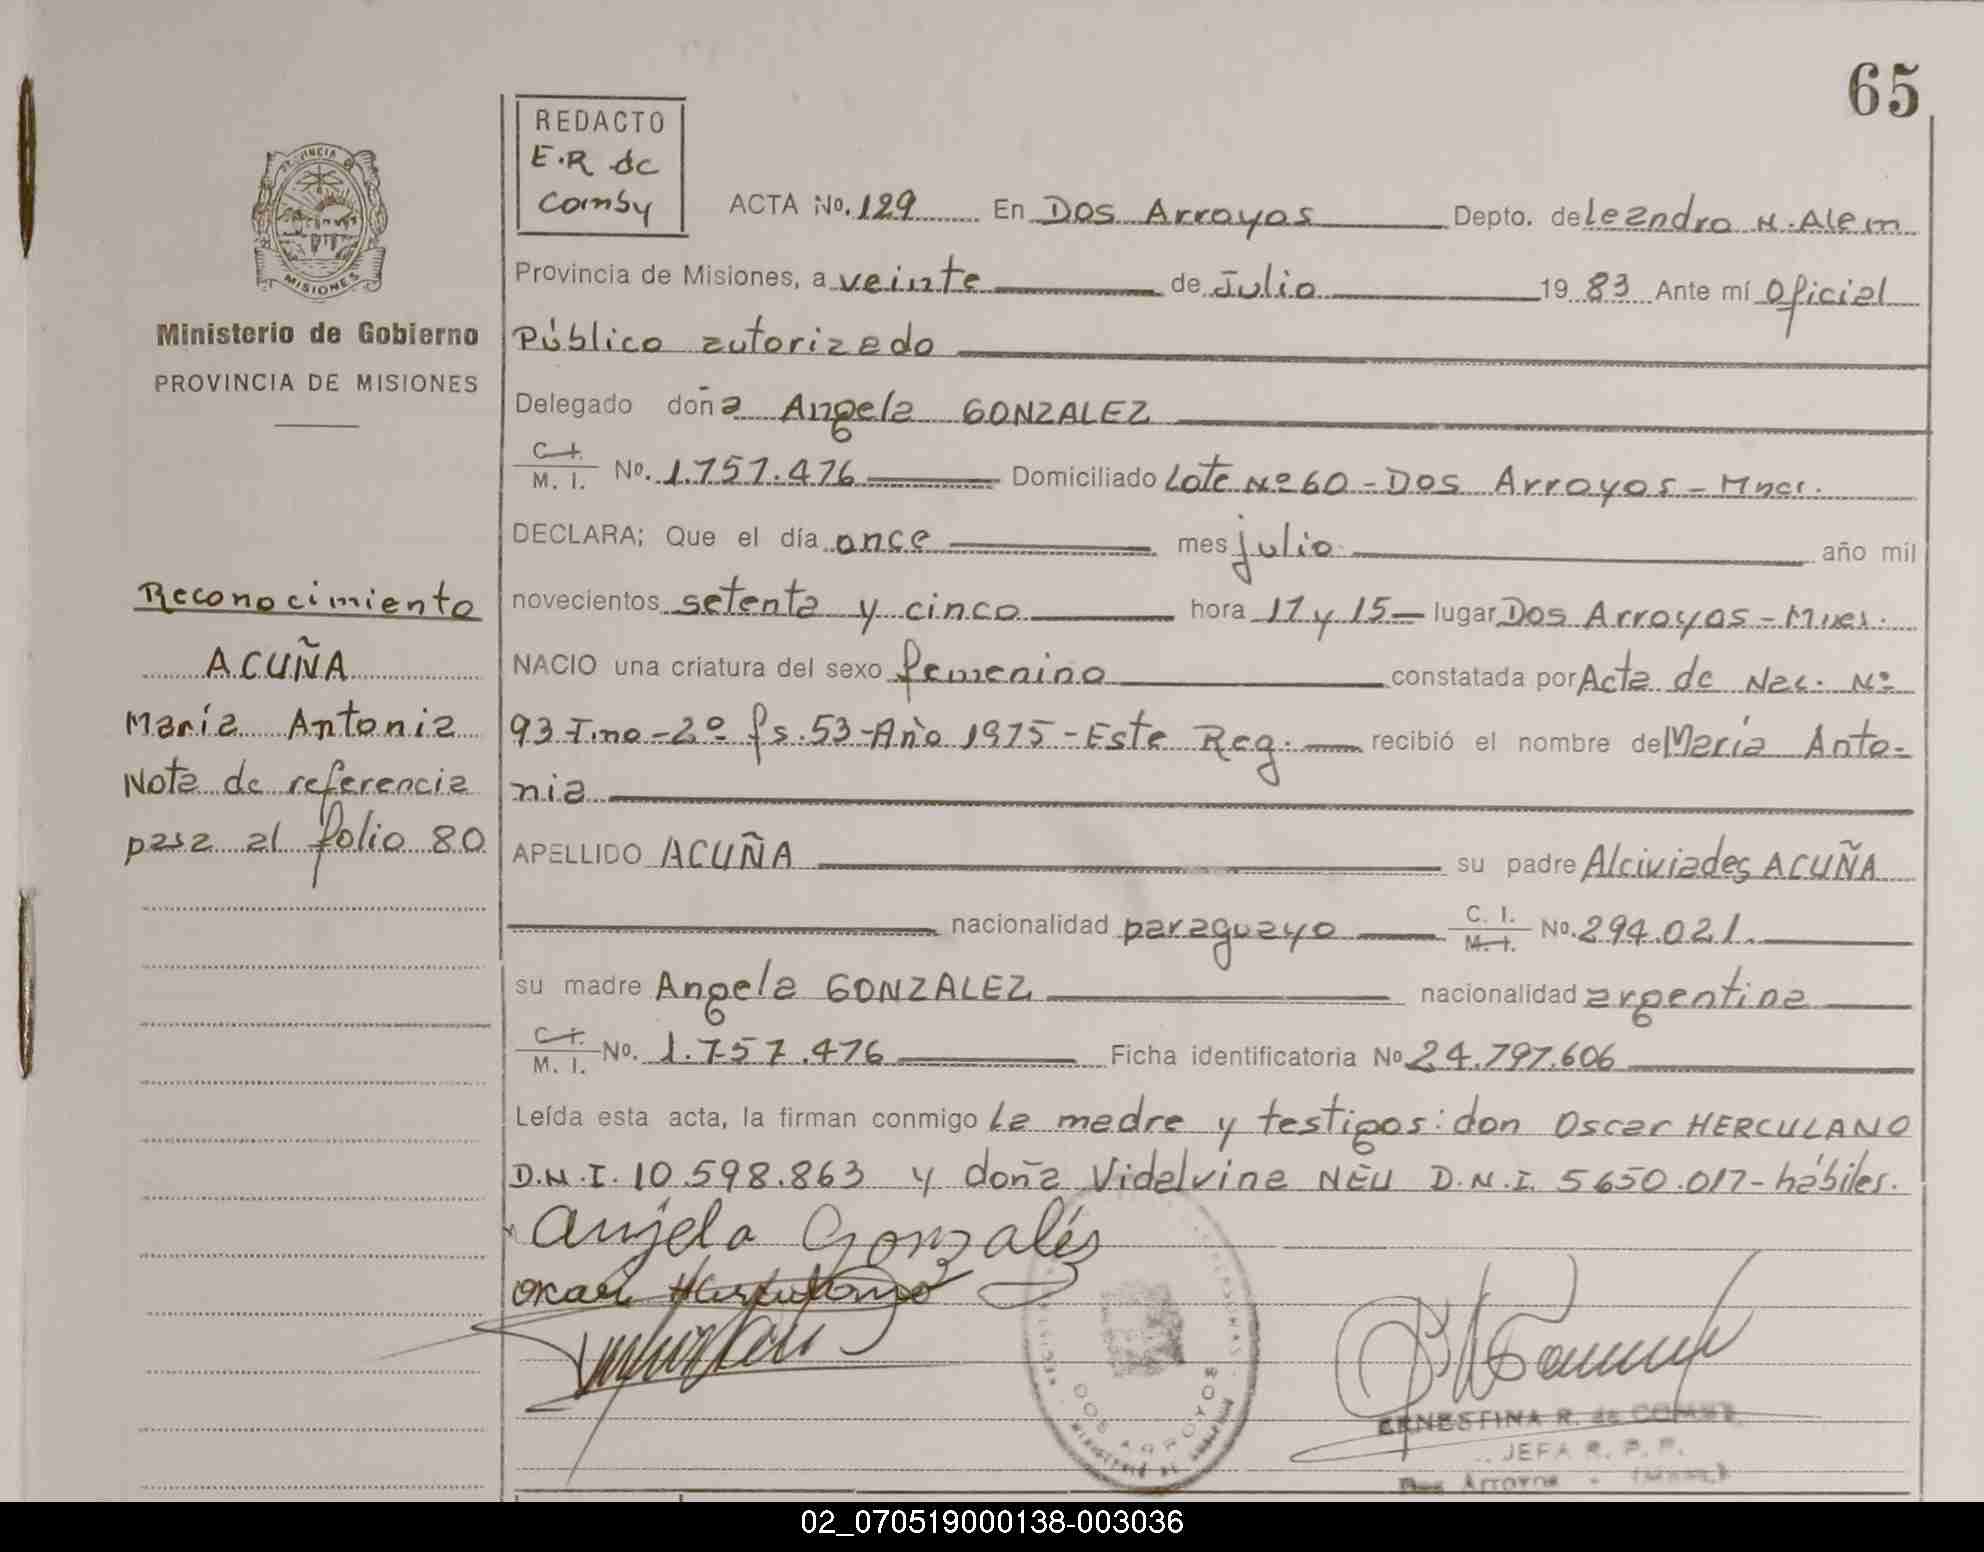 65
REDACTO
E.R de
Comby
PROVINCIA DE
MISIONES
Ministerio de Gobierno
PROVINCIA DE MISIONES
ACTA No. 129 En Dos Arroyos Depto. de Leandro N. Alem
Provincia de Misiones, a veinte de Julio 19 83 Ante mí Oficial
Público autorizado
Delegado doña Angela GONZALEZ
C. I. / M. I. No. 1.757.476 Domiciliado Lote Nº 60 - Dos Arroyos - Mnes.
DECLARA; Que el día once mes julio año mil
novecientos setenta y cinco hora 17 y 15 lugar Dos Arroyos - Mnes.
NACIO una criatura del sexo femenino constatada por Acta de Nac. Nº
93 Tmo - 2º fs. 53 - Año 1975 - Este Reg. recibió el nombre de María Anto-
nia
APELLIDO ACUÑA su padre Alciviades ACUÑA
nacionalidad paraguayo C. I. / M. I. No. 294.021.
su madre Angela GONZALEZ nacionalidad argentina
C. I. / M. I. No. 1.757.476 Ficha identificatoria No 24.797.606
Leída esta acta, la firman conmigo la madre y testigos: don Oscar HERCULANO
D.N.I. 10.598.863 y doña Vidalvina NEU D.N.I. 5650.017 - hábiles.
Reconocimiento
ACUÑA
María Antonia
Nota de referencia
pasa al folio 80
Anjela Gonzalés
DOS ARROYOS
ERNESTINA R. de COMBY
JEFA R. P. P.
Dos Arroyos - (Mnes.)
02_070519000138-003036